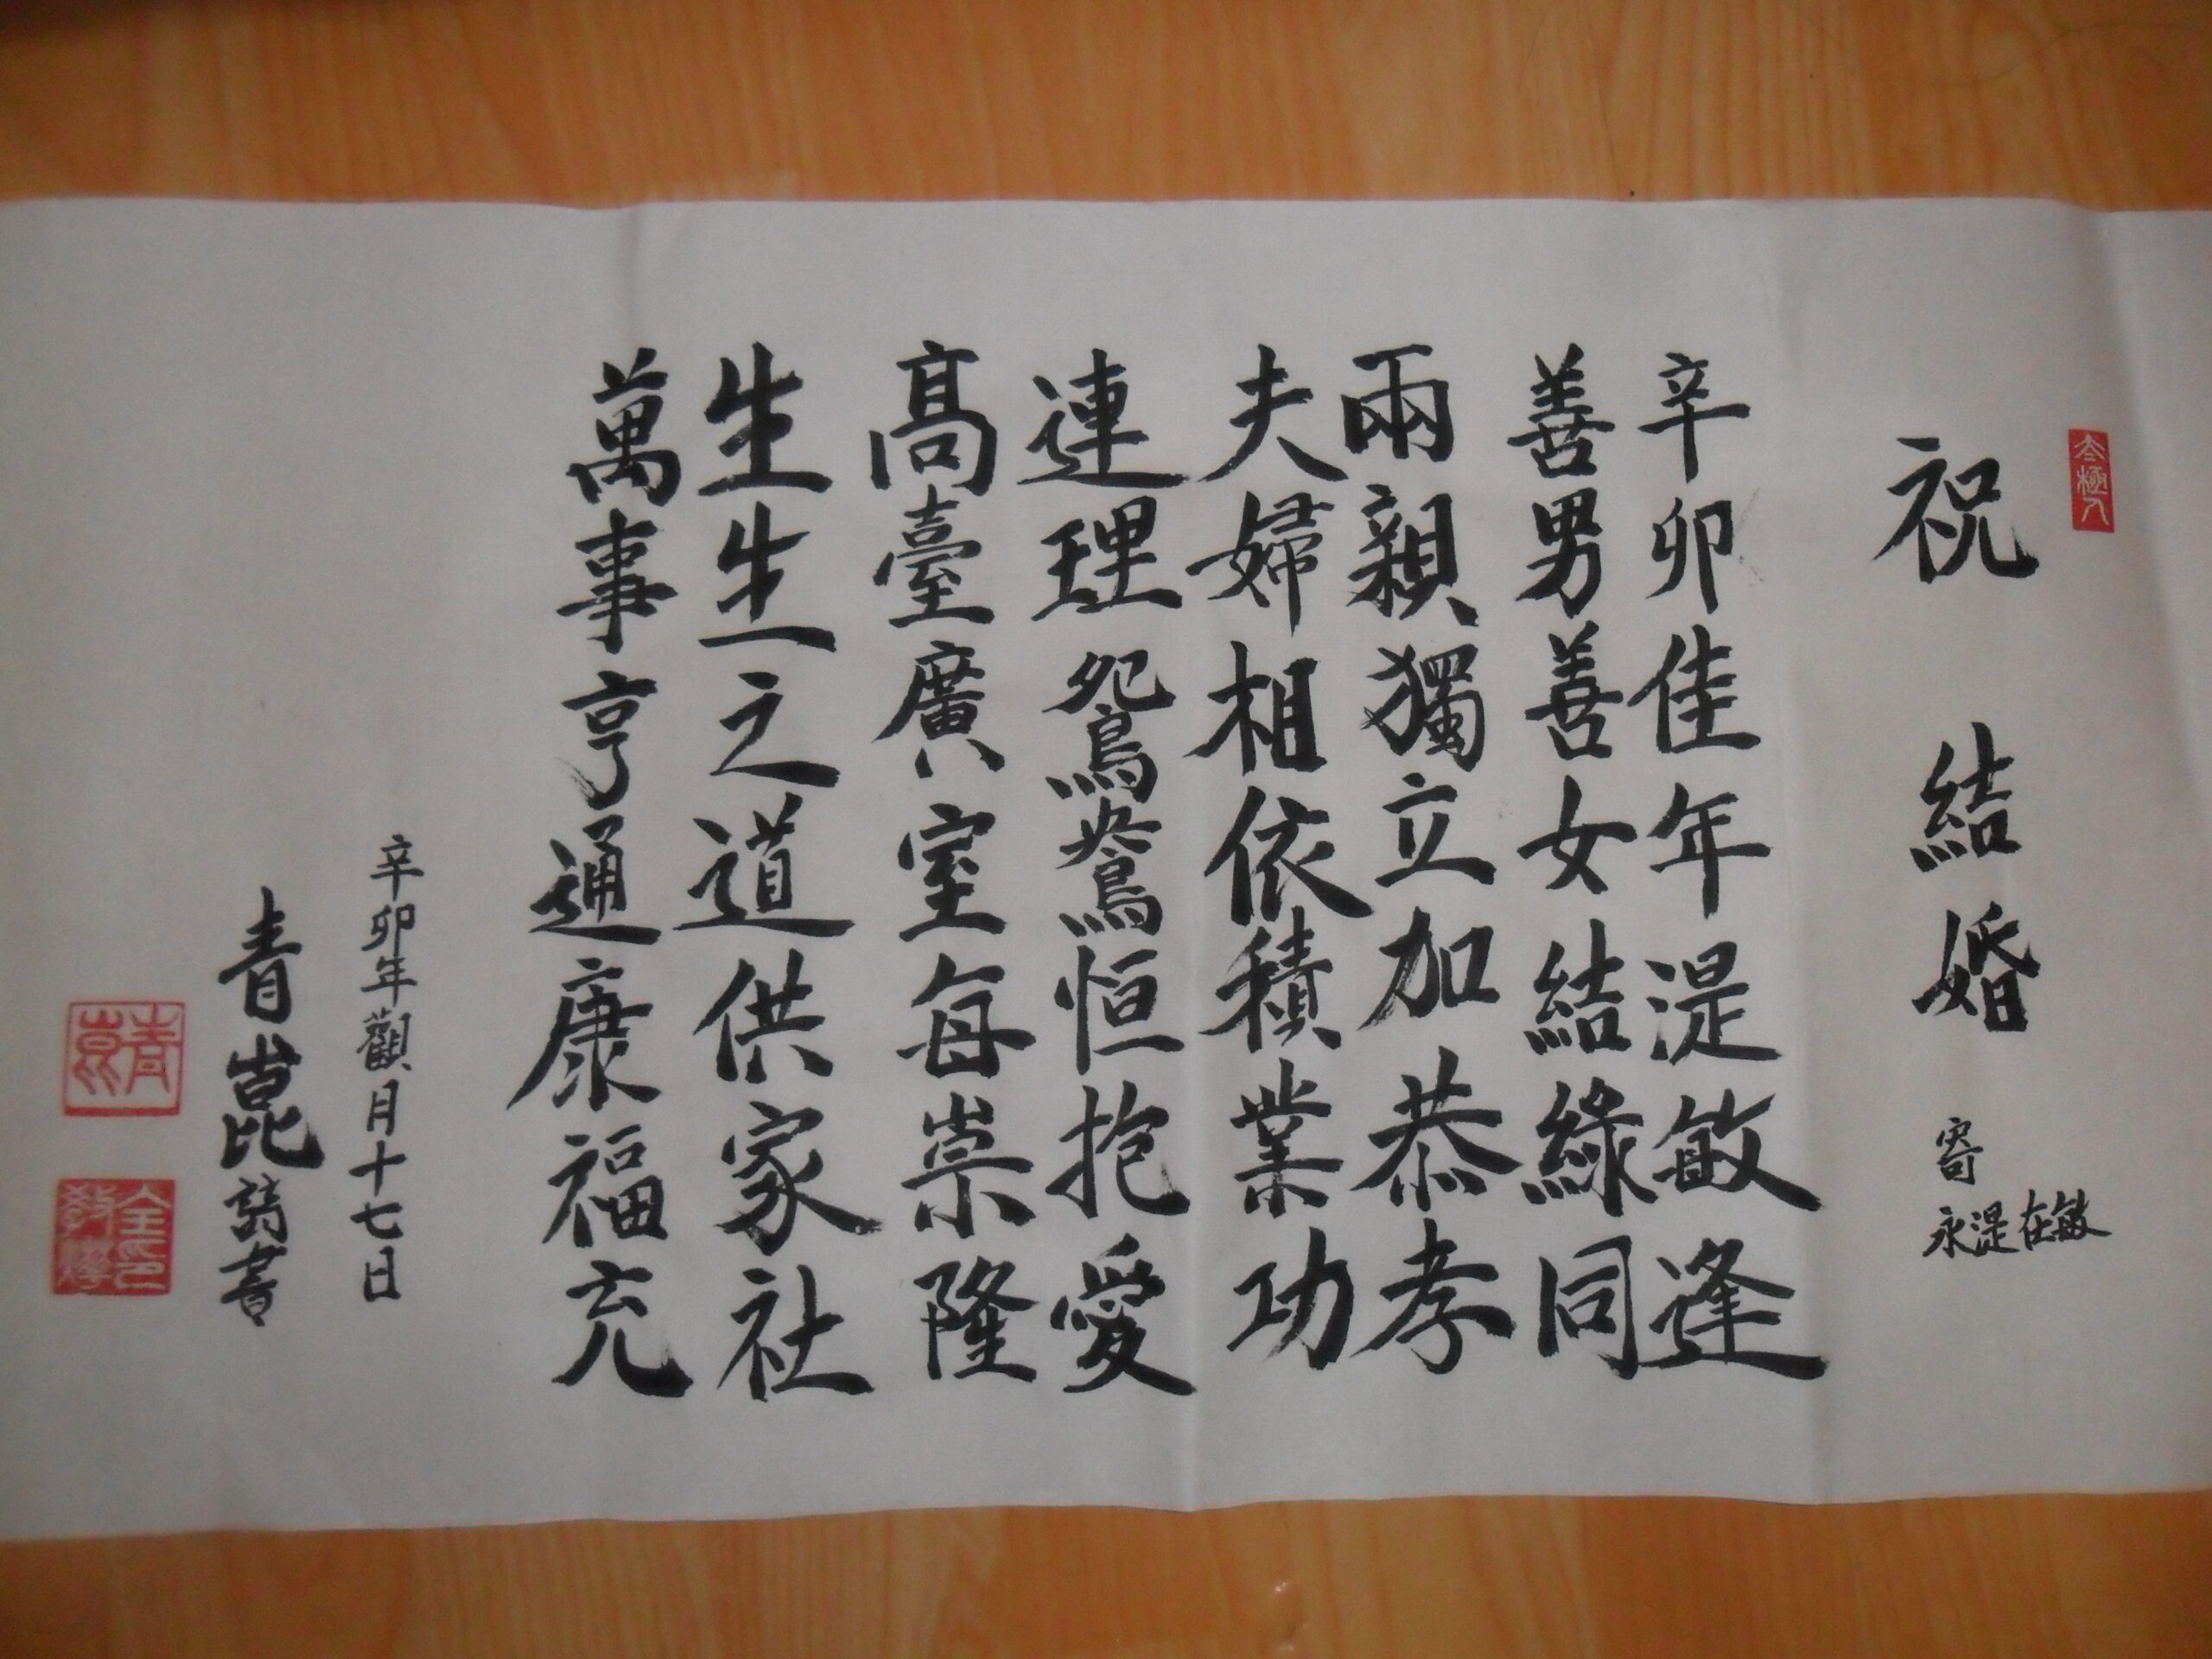 太極人
祝 結婚
寄
永湜在敏
辛卯佳年湜敏逢
善男善女結綠同
兩親獨立加恭孝
夫婦相依積業功
連理鴛鴦恒抱愛
高臺廣室每崇隆
生生之道供家社
萬事亨通康福充
辛卯年觀月十七日
青崑 書
青崑